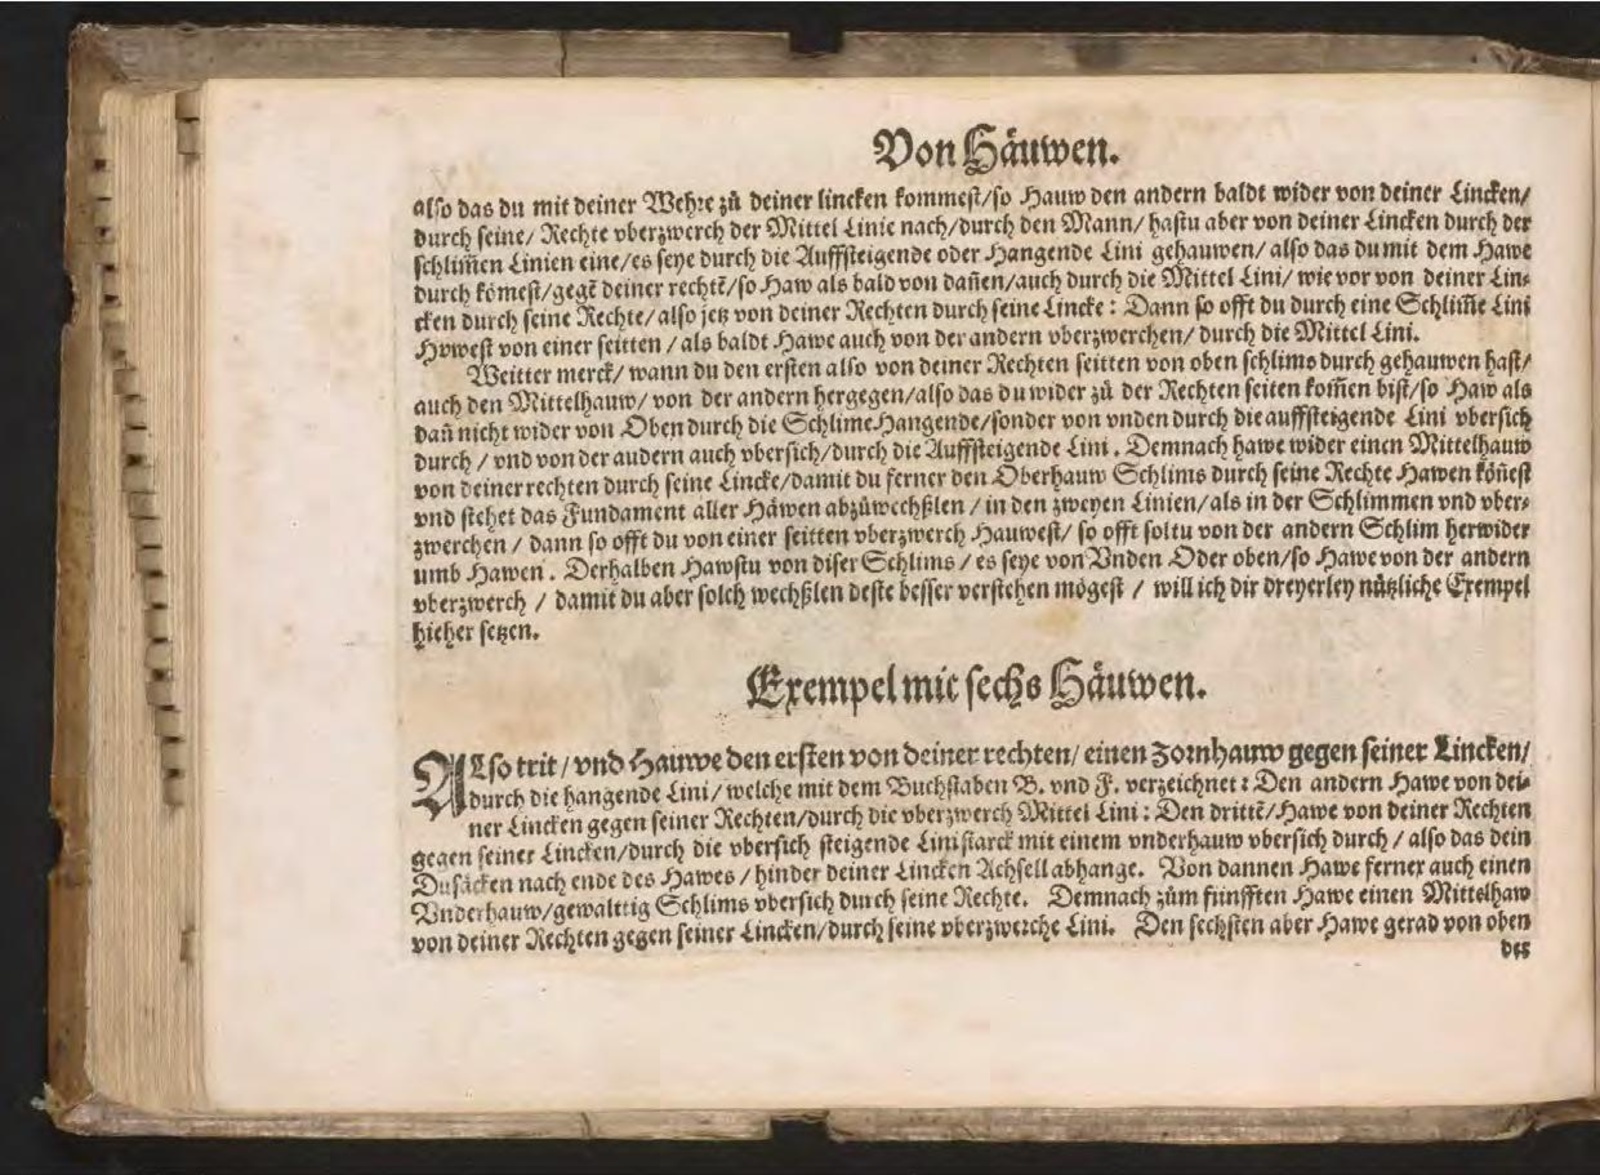 Von Häuwen.
also das du mit deiner Wehre zů deiner lincken kommest/so Hauw den andern baldt wider von deiner Lincken/
durch seine/ Rechte vberzwerch der Mittel Linie nach/durch den Mann/ hastu aber von deiner Lincken durch der
schlim̄en Linien eine/es seye durch die Auffsteigende oder Hangende Lini gehauwen/ also das du mit dem Hawe
durch kömest/gegē deiner rechtē/so Haw als bald von dan̄en/auch durch die Mittel Lini/ wie vor von deiner Lin-
cken durch seine Rechte/also jetz von deiner Rechten durch seine Lincke: Dann so offt du durch eine Schlim̄e Lini
Hvwest von einer seitten/als baldt Hawe auch von der andern vberzwerchen/ durch die Mittel Lini.
Weitter merck/ wann du den ersten also von deiner Rechten seitten von oben schlims durch gehauwen hast/
auch den Mittelhauw/ von der andern hergegen/also das du wider zů der Rechten seiten kom̄en bist/so Haw als
dan̄ nicht wider von Oben durch die Schlime Hangende/sonder von vnden durch die auffsteigende Lini vbersich
durch/vnd von der audern auch vbersich/durch die Auffsteigende Lini. Demnach hawe wider einen Mittelhauw
von deiner rechten durch seine Lincke/damit du ferner den Oberhauw Schlims durch seine Rechte Hawen kön̄est
vnd stehet das Fundament aller Häwen abzůwechßlen/in den zweyen Linien/als in der Schlimmen vnd vber-
zwerchen/ dann so offt du von einer seitten vberzwerch Hauwest/ so offt soltu von der andern Schlim herwider
umb Hawen. Derhalben Hawstu von diser Schlims/ es seye von Vnden Oder oben/so Hawe von der andern
vberzwerch/ damit du aber solch wechßlen deste besser verstehen mögest/ will ich dir dreyerley nützliche Exempel
hieher setzen.
Exempel mit sechs Häuwen.
ALso trit/vnd Hauwe den ersten von deiner rechten/einen Zornhauw gegen seiner Lincken/
durch die hangende Lini/welche mit dem Buchstaben B. vnd F. verzeichnet: Den andern Hawe von dei-
ner Lincken gegen seiner Rechten/durch die vberzwerch Mittel Lini: Den drittē/Hawe von deiner Rechten
gegen seiner Lincken/durch die vbersich steigende Lini starck mit einem vnderhauw vbersich durch/also das dein
Dusäcken nach ende des Hawes/hinder deiner Lincken Achsell abhange. Von dannen Hawe ferner auch einen
Vnderhauw/gewalttig Schlims vbersich durch seine Rechte. Demnach zům fünfften Hawe einen Mittelhaw
von deiner Rechten gegen seiner Lincken/durch seine vberzwerche Lini. Den sechsten aber Hawe gerad von oben
des